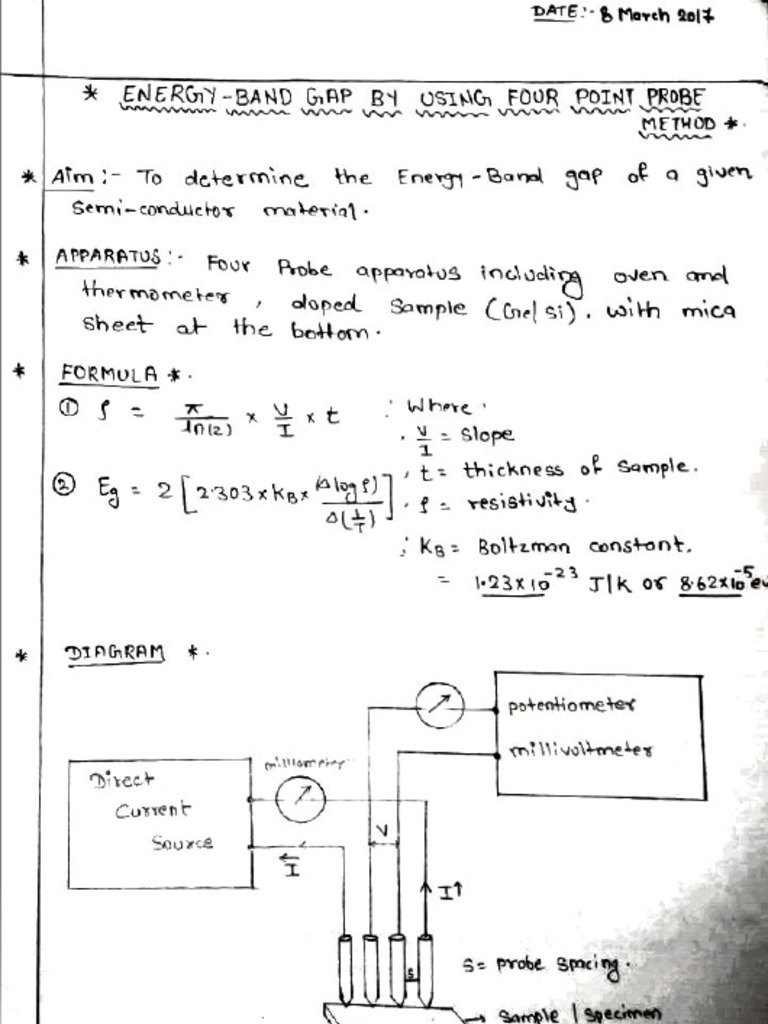 DATE:- 8 March 2017
* ENERGY-BAND GAP BY USING FOUR POINT PROBE
METHOD *.
* Aim:- To determine the Energy-Band gap of a given
Semi-conductor material.
* APPARATUS:- Four Probe apparatus including oven and
thermometer, doped Sample (Ge/si). with mica
Sheet at the bottom.
* FORMULA *.
① ρ = π/ln(2) × V/I × t ∴ Where.
. V/I = slope
, t = thickness of sample.
② Eg = 2 [2.303 × KB × (Δlogρ)/Δ(1/T)] . ρ = resistivity.
∴ KB = Boltzman constant.
= 1.23×10⁻²³ J/K or 8.62×10⁻⁵ ev
* DIAGRAM *.
potentiometer
millivoltmeter
milliameter
Direct
Current
Source
V
I
I↑
S
S = probe spacing.
→ Sample / specimen